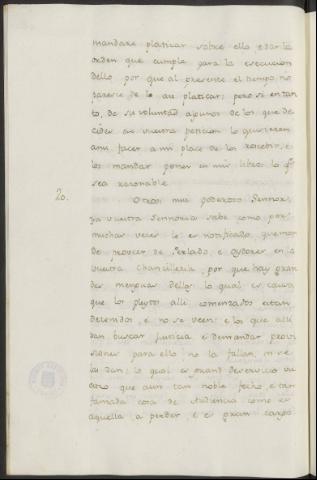 mandare platicar sobre ello, e dar la
orden que cumple para la esecucion
dello por que al presente el tiempo no
paresce de lo au platicar; pero si en tan
to, de su voluntad algunos de los que de
cides en vuestra peticion lo quisieren
ami facer a mi place de los rescebir, e
los mandar poner en mis libros lo que
sea rasonable.
20. Otrosi mui poderoso Sennor,
ya vuestra Sennoria sabe como por
muchas veces le es notificado, quemon
de proveer de Perlado, e Oydores en la
vuestra Chancilleria, por que hay gran
des menguas dellos lo qual es causa
que los pleytos alli comenzados estan
detenidos, e no se veen: e los que alli
van buscar justicia e demandar provi
siones para ello no la fallan, ni se
las dan: lo qual es grand deservicio vu
estro que aun tan noble fecho, e tan
famada cosa de Audiencia como es
aquella a perder, e es gran cargo